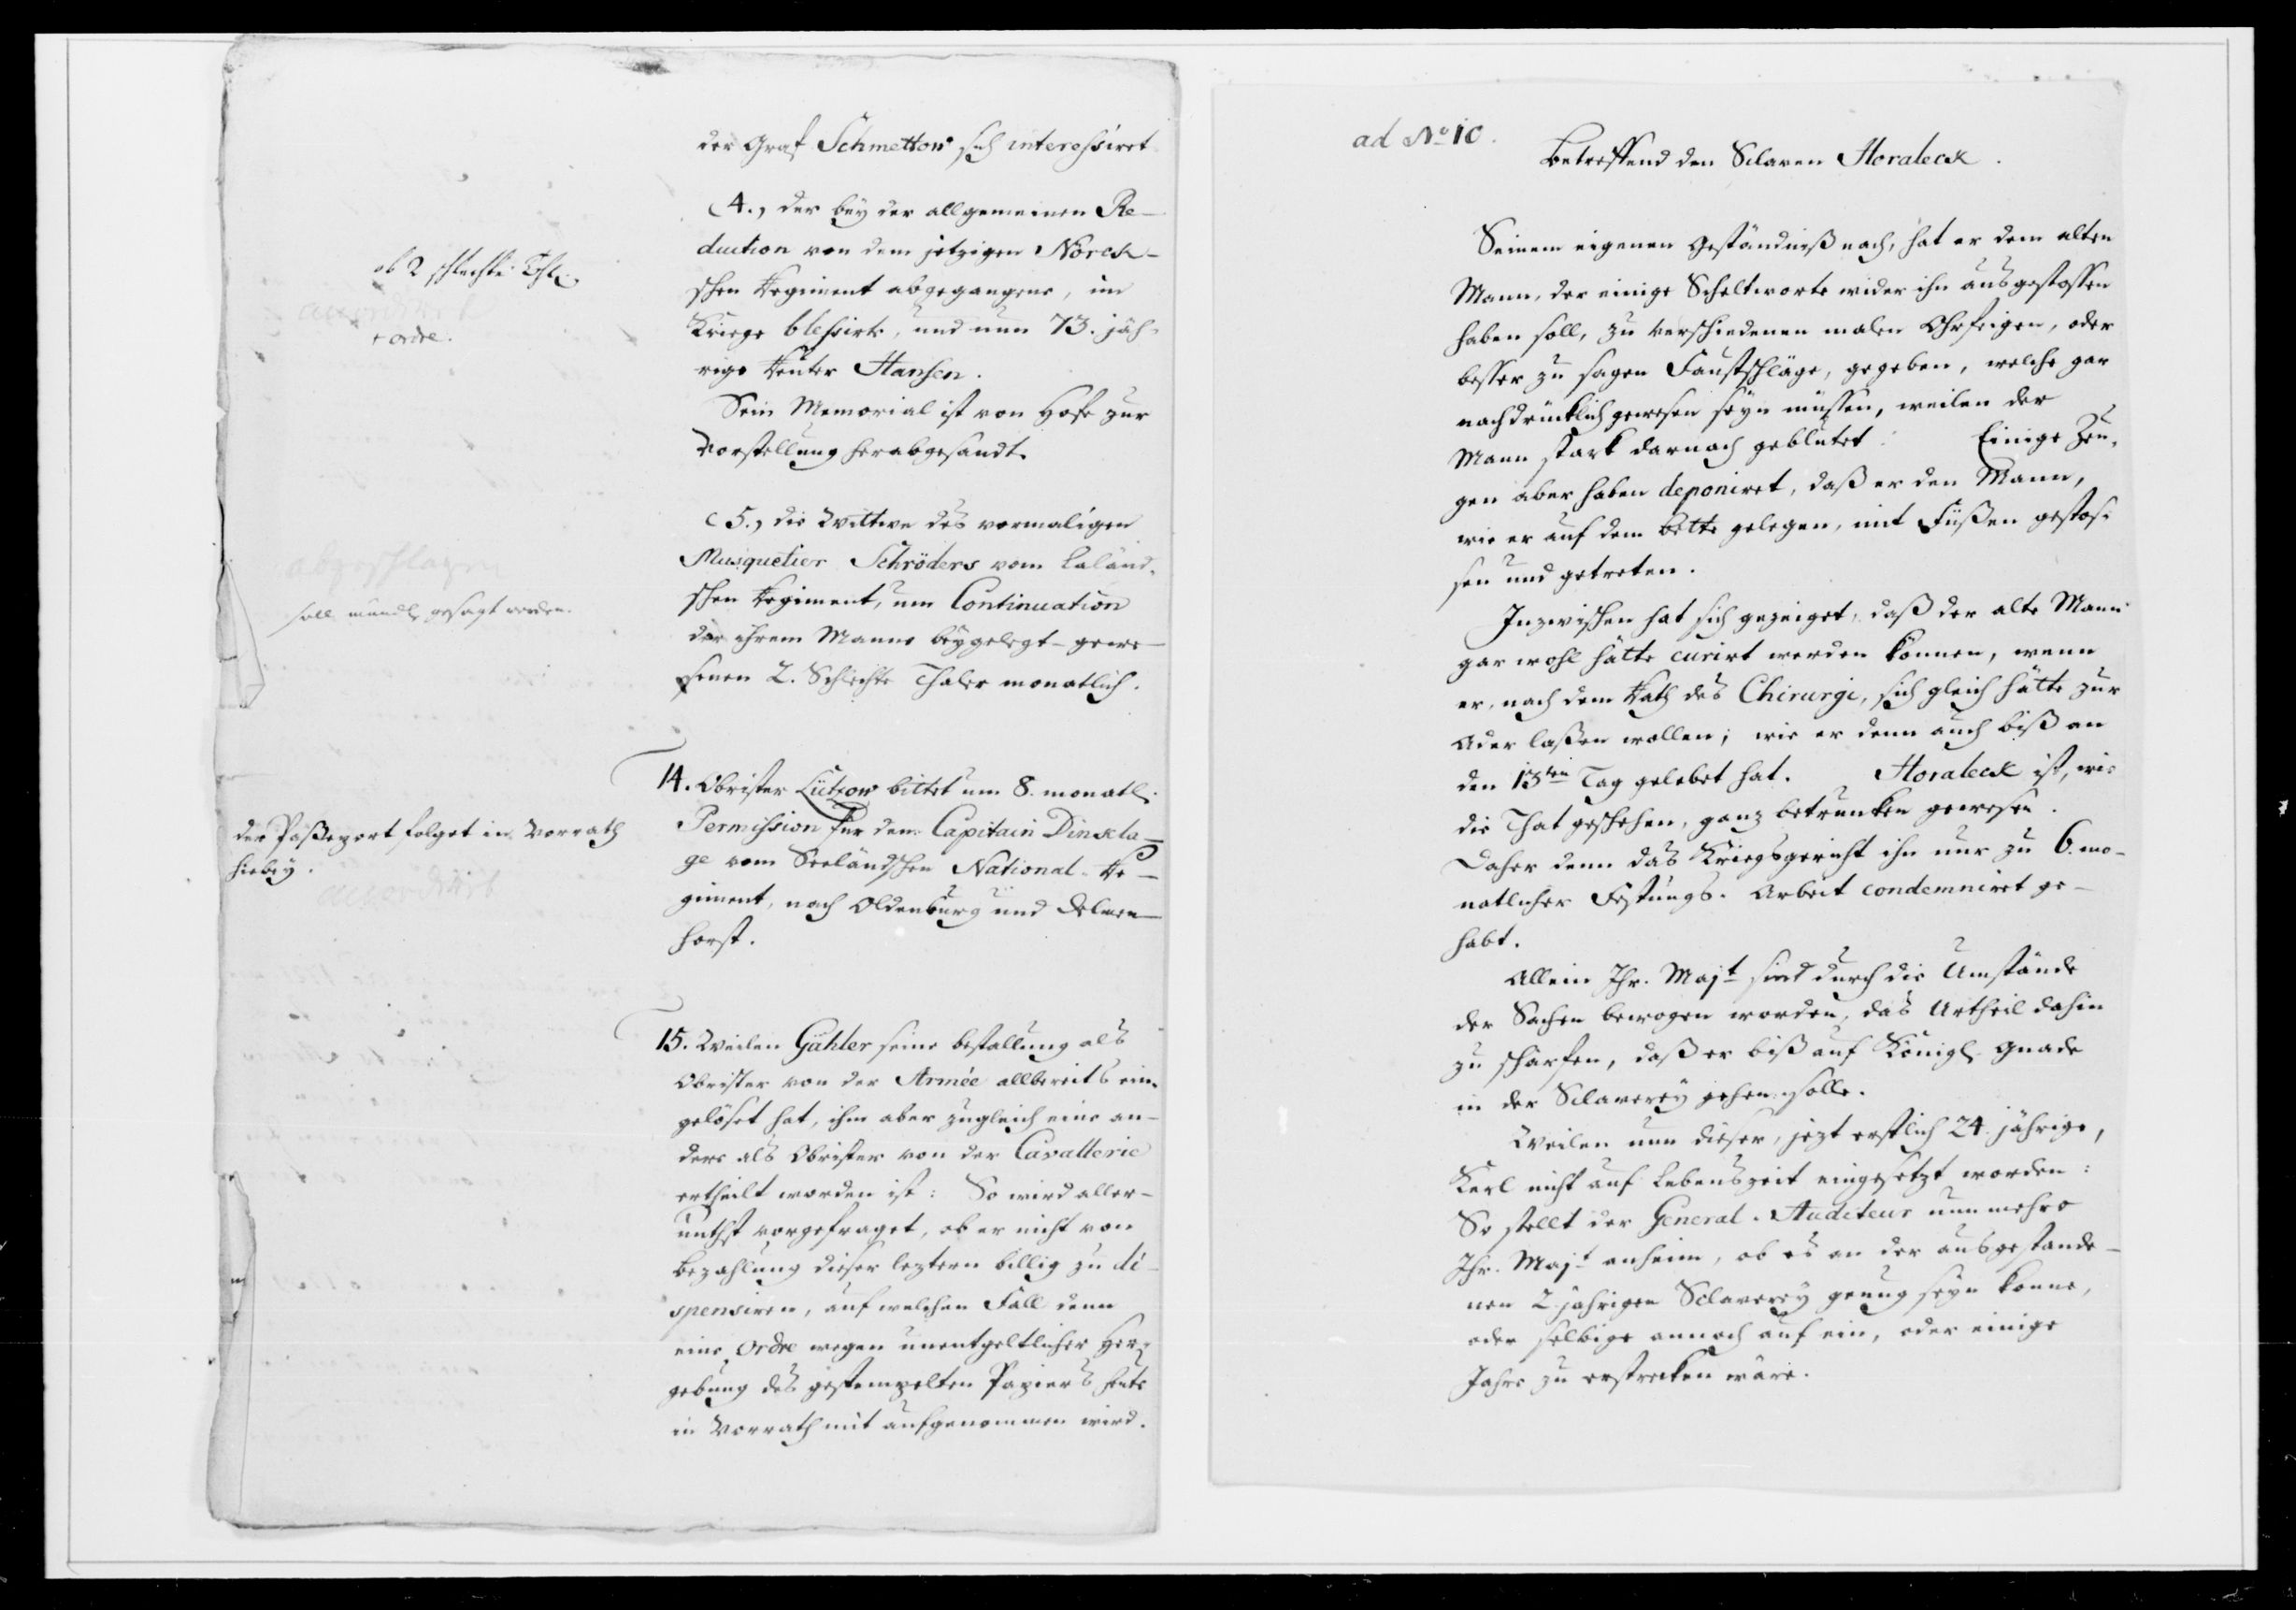 der Graf Schmettow sich interessiret
(4., der bey der allgemeinen Re-
duction von dem jetzigen Nörck-
schen Regiment abgegangene, im
Kriege blessirte, und nun 73. jäh-
rige Reuter Hansen.
Sein Memorial ist von Hofe zur
Vorstellung herabgesandt.
ob 2 schlechte Thlr.
accordirt
+ ordre.
(5., die Wittwe des vormaligen
Musquetier Schröders vom Laländ-
schen Regiment, um Continuation
der ihrem Manne beygelegt-gewe-
senen 2. Schlechte Thaler monatlich.
abgeschlagen
soll mündl. gesagt werden.
14. Obrister Lützow bittet um 8. monatl.
Permission für den Capitain Dinckla-
ge vom Seeländschen National-Re-
giment, nach Oldenburg und Delmen-
horst.
der Passeport folget in Vorrath
hiebey.
accordirt
15. Weilen Gähler seine bestallung als
Obrister von der Armée allbereits ein-
gelöset hat, ihm aber zugleich eine an-
dere als Obrister von der Cavallerie
ertheilt worden ist: So wird aller-
unthst vorgefraget, ob er nicht von
Bezahlung dieser leztern billig zu di-
spensiren, auf welchen Fall denn
eine Ordre wegen unentgeltlicher Her-
gebung des gestempelten Papiers heute
in Vorrath mit aufgenommen wird.
ad No 10.
Betreffend den Sclaven Horaleck.
Seinem eigenen Geständniß nach, hat er dem alten
Mann, der einige Scheltworte wider ihn ausgestossen
haben soll, zu verschiedenen malen Ohrfeigen, oder
besser zu sagen Faustschläge, gegeben, welche gar
nachdrücklich gewesen seyn müssen, weilen der
Mann stark darnach geblutet. Einige Zeu-
gen aber haben deponiret, daß er den Mann,
wie er auf dem Bette gelegen, mit Füßen gestos-
sen und getreten.
Inzwischen hat sich gezeiget, daß der alte Mann
gar wohl hätte curirt werden können, wenn
er, nach dem Rath des Chirurgi, sich gleich hätte zur
Ader laßen wollen; wie er denn auch biß an
den 13ten Tag gelebet hat. Horaleck ist, wie
die That geschehen, ganz betrunken gewesen.
Daher denn das Kriegsgericht ihn nur zu 6. mo-
natlicher Festungs-Arbeit condemniret ge-
habt.
Allein Ihr. Majt sind durch die Umstände
der Sachen bewogen worden, das Urtheil dahin
zu schärfen, daß er biß auf Königl. Gnade
in der Sclaverey gehen solle.
Weilen nun dieser, jezt erstlich 24. jährige,
Kerl nicht auf Lebenszeit eingesetzt worden:
So stellt der General-Auditeur nunmehro
Ihr. Majt anheim, ob es an der ausgestande-
nen 2. jährigen Sclaverey genug seyn könne,
oder selbige annoch auf ein, oder einige
Jahre zu erstrecken wäre.